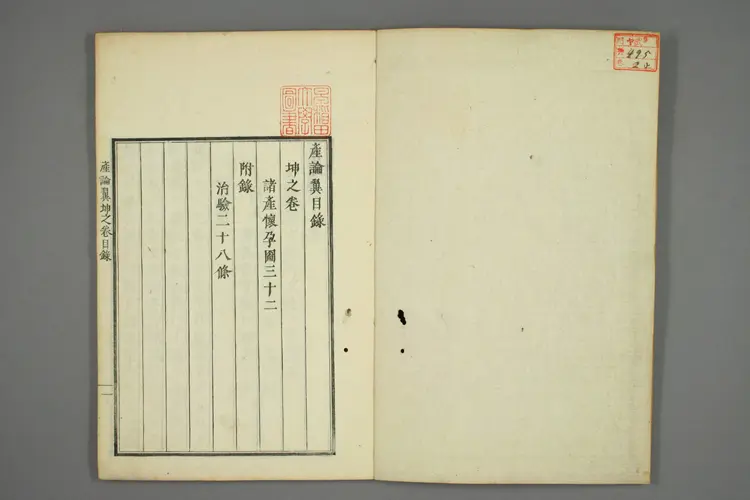 産論翼目錄
坤之卷
諸產懷孕圖三十二
附錄
治驗二十八條
產論翼坤之卷目錄
一
495
24